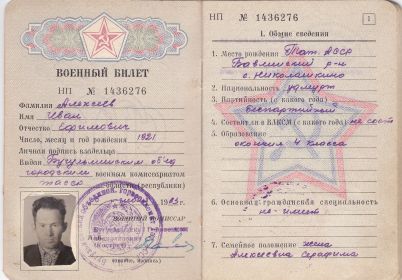 ВОЕННЫЙ БИЛЕТ
НП № 1436276
Фамилия Алексеев
Имя Иван
Отчество Ефимович
Число, месяц и год рождения 1921
Личная подпись владельца
Выдан Бугульминским объед.
городским военным комиссариатом
ТАССР области (республики)
1965 г.
НП № 1436276
1
I. Общие сведения
1. Место рождения Тат. АССР
Бавлинский р-н
с. Николашкино
2. Национальность удмурт
3. Партийность (с какого года)
беспартийный
4. Состоит ли в ВЛКСМ (с какого года) не сост
5. Образование
окончил 4 класса
6. Основная гражданская специальность
не имеет
7. Семейное положение жена
Алексеева Серафима